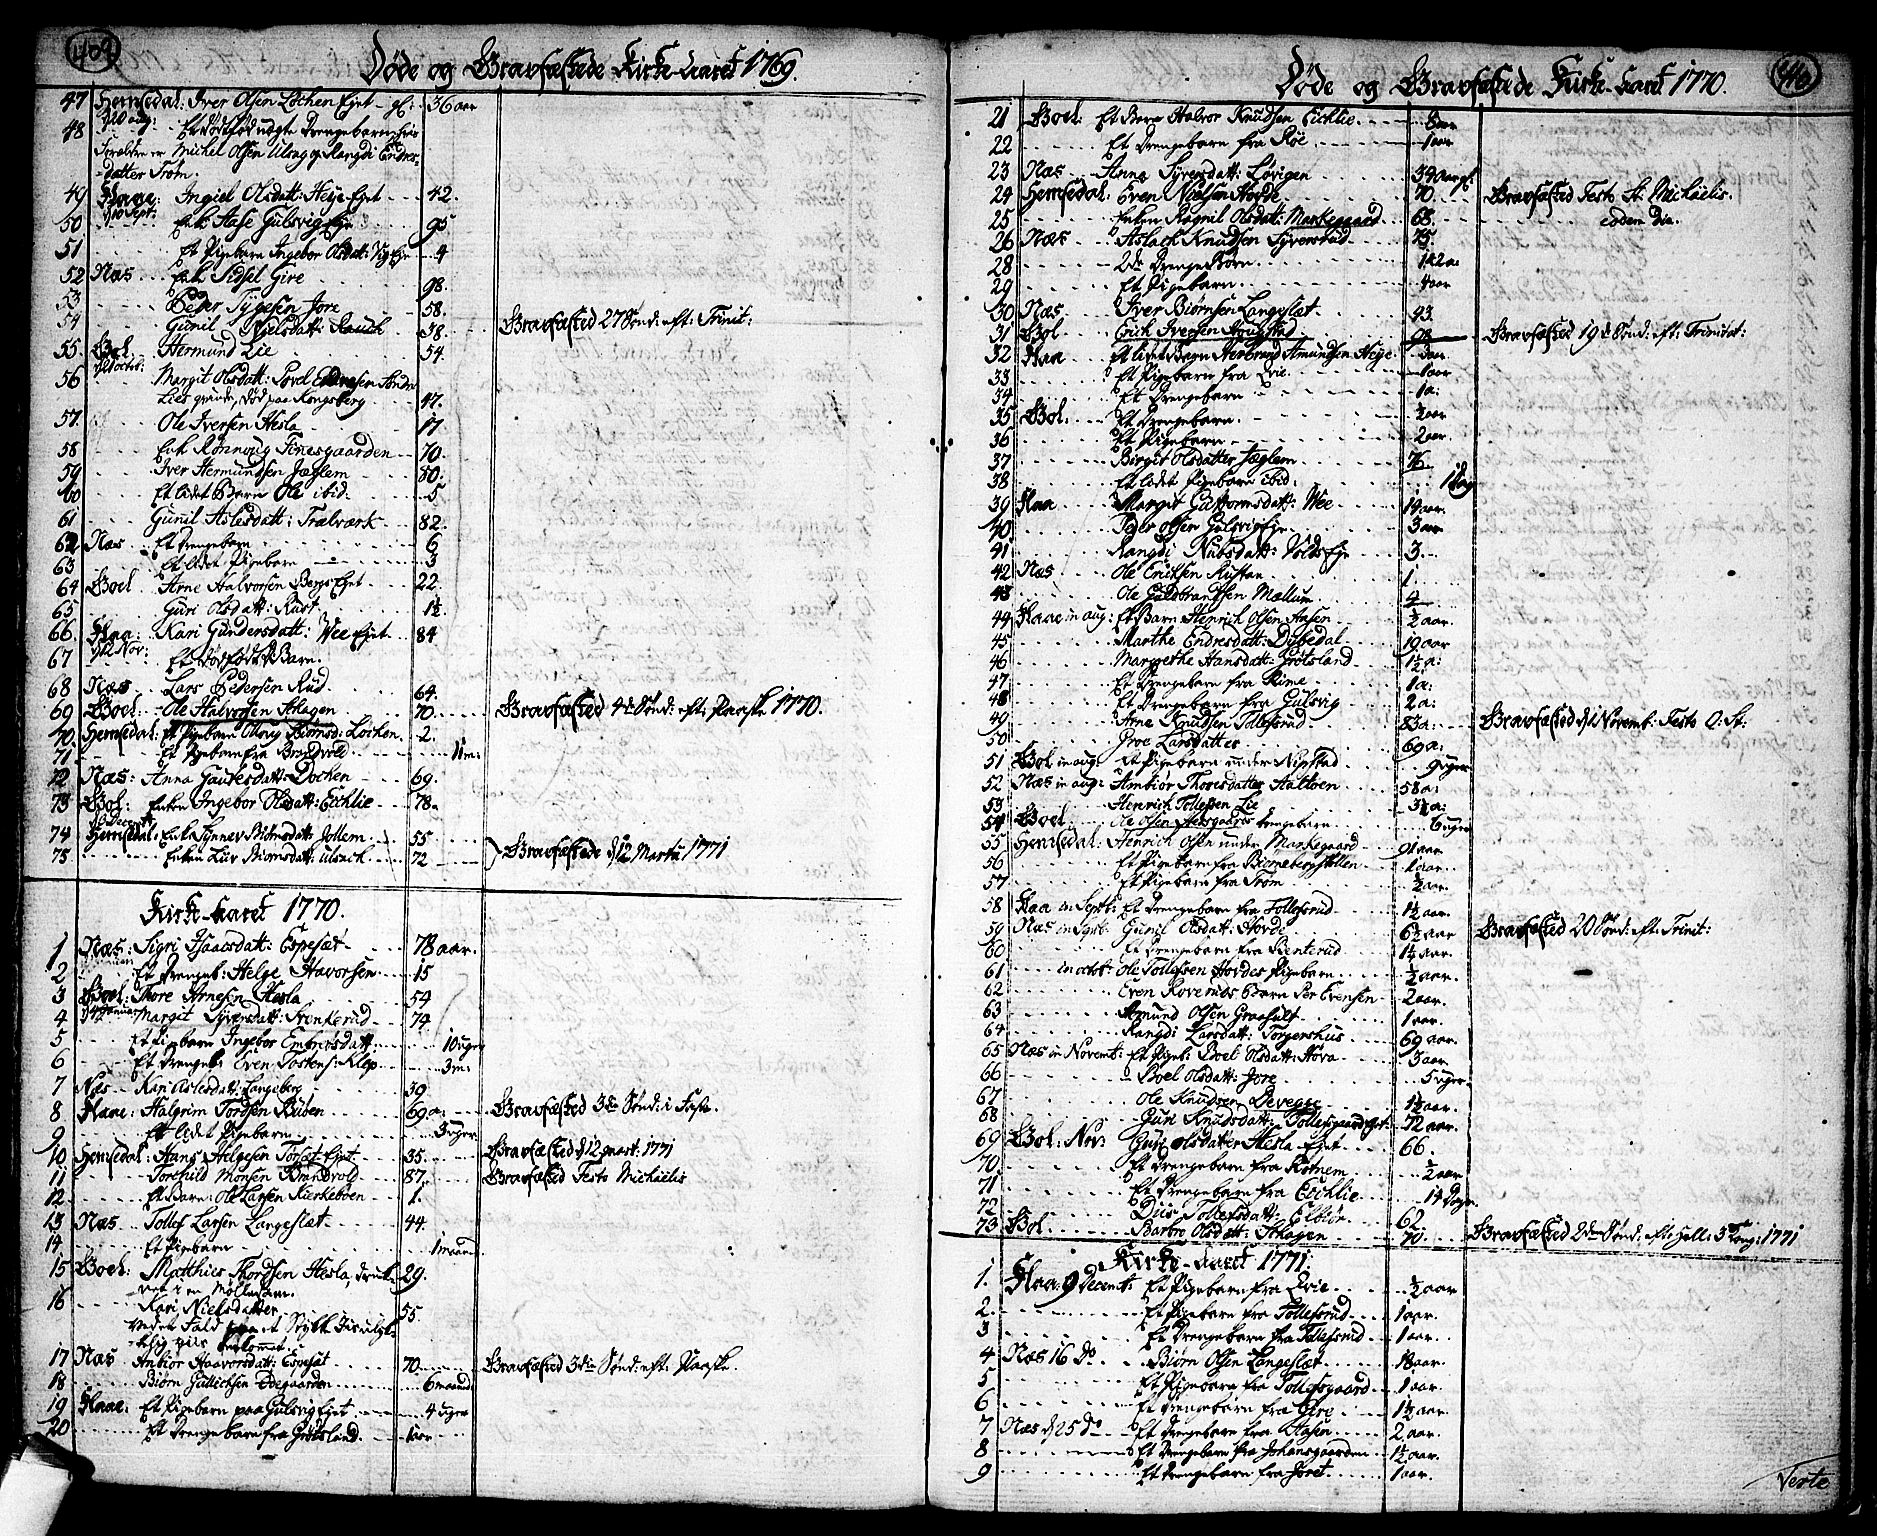 409
Døde og Gravfæstede Kirke-Aaret 1769.
47 Hemsedal: Iver Olsen Løchen Ejet 36 aar
48 d 20 aug: Et dødfød uægte Drengebarn, hvis
Forældre er Michel Olsen Ulsag og Rangdi Endres-
datter Trøm.
49 Flaae: Ingiel Olsdatt: Heje Ejet 42.
50 d 10 Sept: Enk: Aase Gulsvig Eje 95
51 Et Pigebarn Ingebor Olsdat: 4
52 Næs Enk: Sidsel Gire 98.
53 Peder Tygesen Jore 58.
54 Gunil Nielsdatt: Rauch 38. Gravfæsted 27 Sønd: eft: Trinit:
55. Goel Hermund Lie 54.
56 Margit Olsdatt: Povel Endresen
Lies qvinde, død paa Kongsberg 47.
57. Ole Iversen Hesla 17
58 Enk Rønnoug Finesgaarden 70.
59 Iver Hermundsen Jæglem 80.
60 Et lidet Barn Ole ibid. 5
61 Gunil Aslesdatt: Trælværk 82.
62 Næs Et Drengebarn 6
63 Et lidet Pigebarn 3
64 Goel Arne Halvorsen Bergs Ejet 22.
65 Guri Olsdatt: Rust 1½
66. Flaa: Kari Gundersdatt: Vee Ejet 84
67 Et dødfødt Barn.
68 Næs Lars Pedersen Rud 64.
69 Goel Ole Halvorsen Ahagen 70. Gravfæsted 4de Sønd: eft: Paaske 1770.
70 Hemsedal: Et Pigebarn Biørnsd: Løchen 2.
71 Et Pigebarn fra Brandvold 11 m:
72 Næs: Anna Gautesdatt: Dochen 69.
73 Gol: Enken Ingebor Olsdatt: Eichlie 78.
74 Hemsedal: Enke Synnev Biørnsdatt: Jollem 55
75 Enken Liv Biørnsdatt: Ulsach 72 } Gravfæstede d 12 Martii 1771
Kirke-Aaret 1770.
1 Næs: Sigri Isaacsdatt: Espesæt 78 aar.
2 Et Drengeb: Helge Havorsen 15
3 Goel: Thore Arnesen Hesla 54
4 Margit Syversdatt: Frenkerud 74
5 Et Pigebarn Ingebor Embricsdatt 10 uger
6 Et Drengeb: Even Tostens: Klep 3 m:
7 Næs Kari Aslesdatt: Langeberg 39
8 Flaae: Halgrim Tordsen Buben 69 a: Gravfæsted 3die Sønd: i Faste.
9 Et lidet Pigebarn 3 uger
10 Hemsedal: Hans Helgesen Torset Ejet 35. Gravfæsted d 12 Mart: 1771
11 Torehild Monsen Brandvold 87. Gravfæsted Festo Michaelis
12 Et Barn: Ole Larsen Kierkebøen 1.
13 Næs Tollef Larsen Langeslæt 44.
14 Et Pigebarn 1 maand
15 Goel: Matthies Thordsen Hesla, druk- 29.
net i en Mølledam.
16 Kari Nielsdatter 55.
17 Næs Ambiør Haavorsdatt: Espesæt 70. Gravfæsted 3die Sønd: eft: Paaske.
18 Biørn Gullichsen Øegaarden 6 maand
19 Flaae: Et Pigebarn paa Gulsvig Ejet 4 uger
20 Et Drengebarn fra Grøtsland. 1 aar
Døde og Gravfæstede Kirke-Aaret 1770.
21 Goel: Et Barn Halvor Knudsen Eichlie
22 Et Drengebarn fra Røe 1 aar
23 Næs Anne Syversdatt: Løvigen 39 aar
24 Hemsedal. Even Nielsen Hovde 70. Gravfæsted Festo St. Michaelis.
25 Enken Ragnil Olsdatt: Markegaard 68. eodem Die.
26 Næs Aslach Knudsen Syverstad 75.
28 2de DrengeBørn
29 Et Pigebarn aar
30 Næs Iver Biørnsen Langeslæt 43.
31 Gol Erich Ivessen Gravfæsted 19de Sønd: eft: Trinitat:
32 Flaa Et lidet Barn Herbrand Amundsen Heje aar
33 Et Pigebarn fra Evie 1 aar
34 Et Drengebarn 1 a:
35 Gol. Et Drengebarn. ½ aar
36 Et Pigebarn 2 aar.
37 Birgit Olsdatter Jæglem 76
38 Et lidet Pigebarn ibid: 1 Dag
39 Flaa Margit Guttormsdatt: Vee 14 aar.
40 Olsen Gulsvig Eje 3 aar
41 Rangdi Nubsdatt: Volds Eje 3
42 Næs Ole Ericksen Rustan 1
43 Ole Guldbrandsen Mællum 4
44 Flaae in aug: Et Barn Henrich Olsen Aasen ½ aar.
45 Marthe Endresdatt: Dybedal 19 aar
46 Margrethe Hansdatt: Grøtsland 1½ a:
47 Et Drengebarn fra Rime 1 a:
48 Et Drengebarn fra Gulsvig 2 a:
49 Arne Knudsen Tollefsrud 83 a: Gravfæsted d 1 Novemb: Festo O: St:
50 Groe Larsdatter 69 a:
51 Gol in aug. Et Pigebarn under Ripstad 9 uger
52 Næs in aug: Ambiør Thoresdatter Aaltven 58 a:
53 Henrich Tollefsen Lie
54 Goel Ole Olsen drengebarn 6 uger
55 Hemsedal: Henrich Olsen under Markegaard aar
56 Et Pigebarn fra Biørnebergstøllen 1 aar
57 Et Pigebarn fra Trøm ½ aar
58 Flaa in Septb: Et Drengebarn fra Tollefsrud 1½ aar.
59 Næs in Septb: Gunil Olsdatt: Hovde 6½ aar Gravfæsted 20 Sønd: eft: Trinit:
60 Et Drengebarn fra Renterud 1½ aar.
61 in octob: Ole Tollefsen Hovdes Pigebarn ½ aar.
62 Even Rovernes Barn Per Evensen 2 aar.
63 Amund Olsen Graafult 1 aar.
64 Rangdi Larsdatt: Torgershus 69 aar.
65 Næs in Novemb: Et Pigeb: Goel Olsdatt: Hova 3 aar
66 Goel Olsdatt: Jore 5 uger.
67 Ole Knudsen Devegge 1½ aar.
68 Guri Knudsdatt: Tollefsgaard Ejet: 72 aar.
69 Gol: Nov: Guri Olsdatter Hesla Ejet 66.
70 Et Drengebarn fra Rotnem ½ aar
71 Et Drengebarn fra Eichlie 14 Dager
72 Tollefsdatt: Elbiør 62.
73 Gol Barbro Olsdatt: Ahagen 70. Gravfæsted 2den Sønd: eft: Hell: 3 Kong: 1771
Kirke-Aaret 1771:
1. Flaa: 9 Decemb: Et Pigebarn fra Evie ½ aar
2. Et Pigebarn fra Tollefsrud 1 aar.
3 Et Drengebarn fra Tollefsrud 1 aar.
4 Næs 16 do Biørn Olsen Langeslæt 18 aar.
5 Et Pigebarn fra Tollefsgaard 1 aar.
6 Et Drengebarn fra Gire 1½ aar.
7 Næs d 25 do Et Drengebarn fra Aasen 2 aar.
8 Et Drengebarn fra Johansgaarden 1½ aar.
9 Et Drengebarn fra Joret 1 aar.
Verte